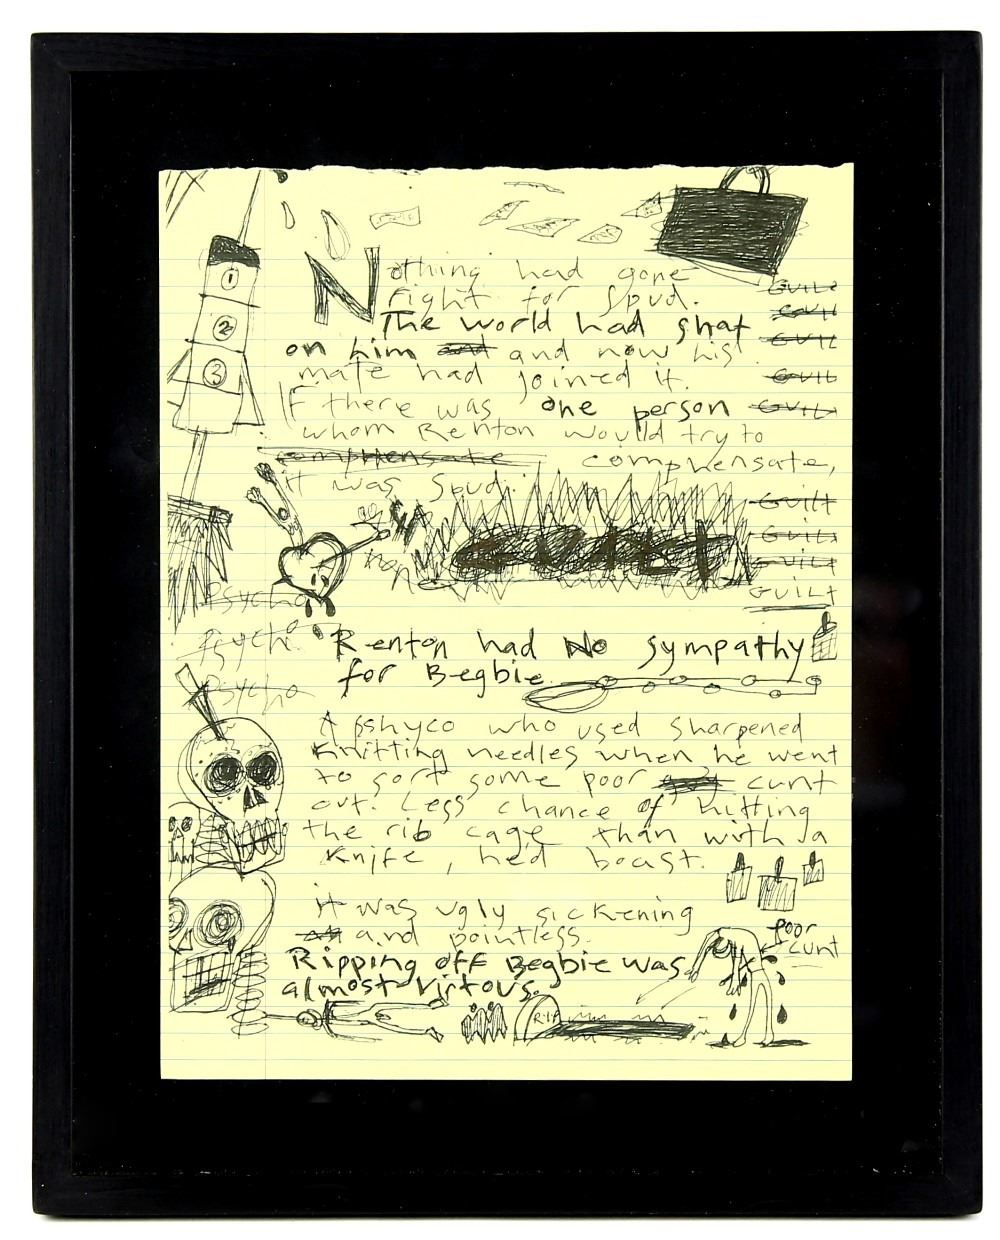 1
2
3
Nothing had gone
right for Spud.
The world had shat
on him and and now his
mate had joined it.
If there was one person
whom Renton would try to
comphensate comphensate,
it was Spud.
GUILT
GUILT
GUILT
GUILT
GUILT
GUILT
GUILT
GUILT
GUILT
GUILT
Psycho
Psycho
Psycho
Renton had No sympathy
for Begbie
A pshyco who used sharpened
Knitting needles when he went
to sort some poor cunt
out. Less chance of hitting
the rib cage than with a
Knife, he'd boast.
it was ugly sickening
and pointless.
Ripping off Begbie was
almost virtous.
poor
cunt
R.I.P